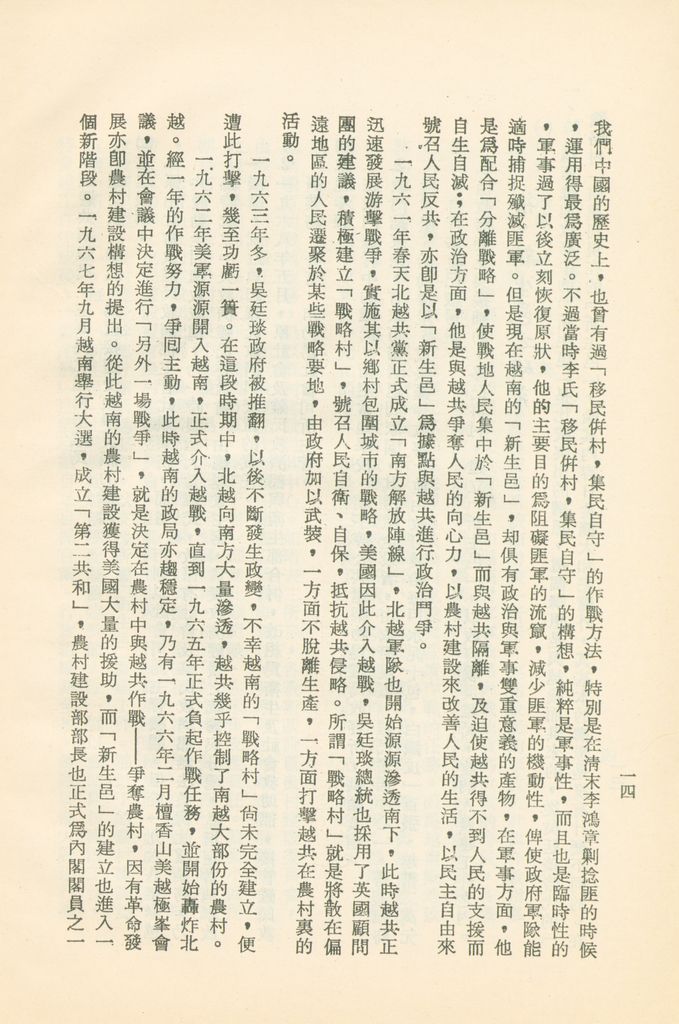 一四
我們中國的歷史上，也曾有過「移民倂村，集民自守」的作戰方法，特別是在清末李鴻章剿捻匪的時候
，運用得最爲廣泛。不過當時李氏「移民倂村，集民自守」的構想，純粹是軍事性，而且也是臨時性的
，軍事過了以後立刻恢復原狀，他的主要目的爲阻礙匪軍的流竄，減少匪軍的機動性，俾使政府軍隊能
適時捕捉殲滅匪軍。但是現在越南的「新生邑」，却俱有政治與軍事雙重意義的產物，在軍事方面，他
是爲配合「分離戰略」，使戰地人民集中於「新生邑」而與越共隔離，及迫使越共得不到人民的支援而
自生自滅；在政治方面，他是與越共爭奪人民的向心力，以農村建設來改善人民的生活，以民主自由來
號召人民反共，亦卽是以「新生邑」爲據點與越共進行政治鬥爭。
一九六一年春天北越共黨正式成立「南方解放陣線」，北越軍隊也開始源源滲透南下，此時越共正
迅速發展游擊戰爭，實施其以鄉村包圍城市的戰略，美國因此介入越戰，吳廷琰總統也採用了英國顧問
團的建議，積極建立「戰略村」，號召人民自衛、自保，抵抗越共侵略。所謂「戰略村」就是將散在偏
遠地區的人民遷聚於某些戰略要地，由政府加以武裝，一方面不脫離生產，一方面打擊越共在農村裏的
活動。
一九六三年冬，吳廷琰政府被推翻，以後不斷發生政變，不幸越南的「戰略村」尙未完全建立，便
遭此打擊，幾至功虧一簣。在這段時期中，北越向南方大量滲透，越共幾乎控制了南越大部份的農村。
一九六二年美軍源源開入越南，正式介入越戰，直到一九六五年正式負起作戰任務，並開始轟炸北
越。經一年的作戰努力，爭回主動，此時越南的政局亦趨穩定，乃有一九六六年二月檀香山美越極峯會
議，並在會議中決定進行「另外一場戰爭」，就是決定在農村中與越共作戰——爭奪農村，因有革命發
展亦卽農村建設構想的提出。從此越南的農村建設獲得美國大量的援助，而「新生邑」的建立也進入一
個新階段。一九六七年九月越南舉行大選，成立「第二共和」，農村建設部部長也正式爲內閣閣員之一